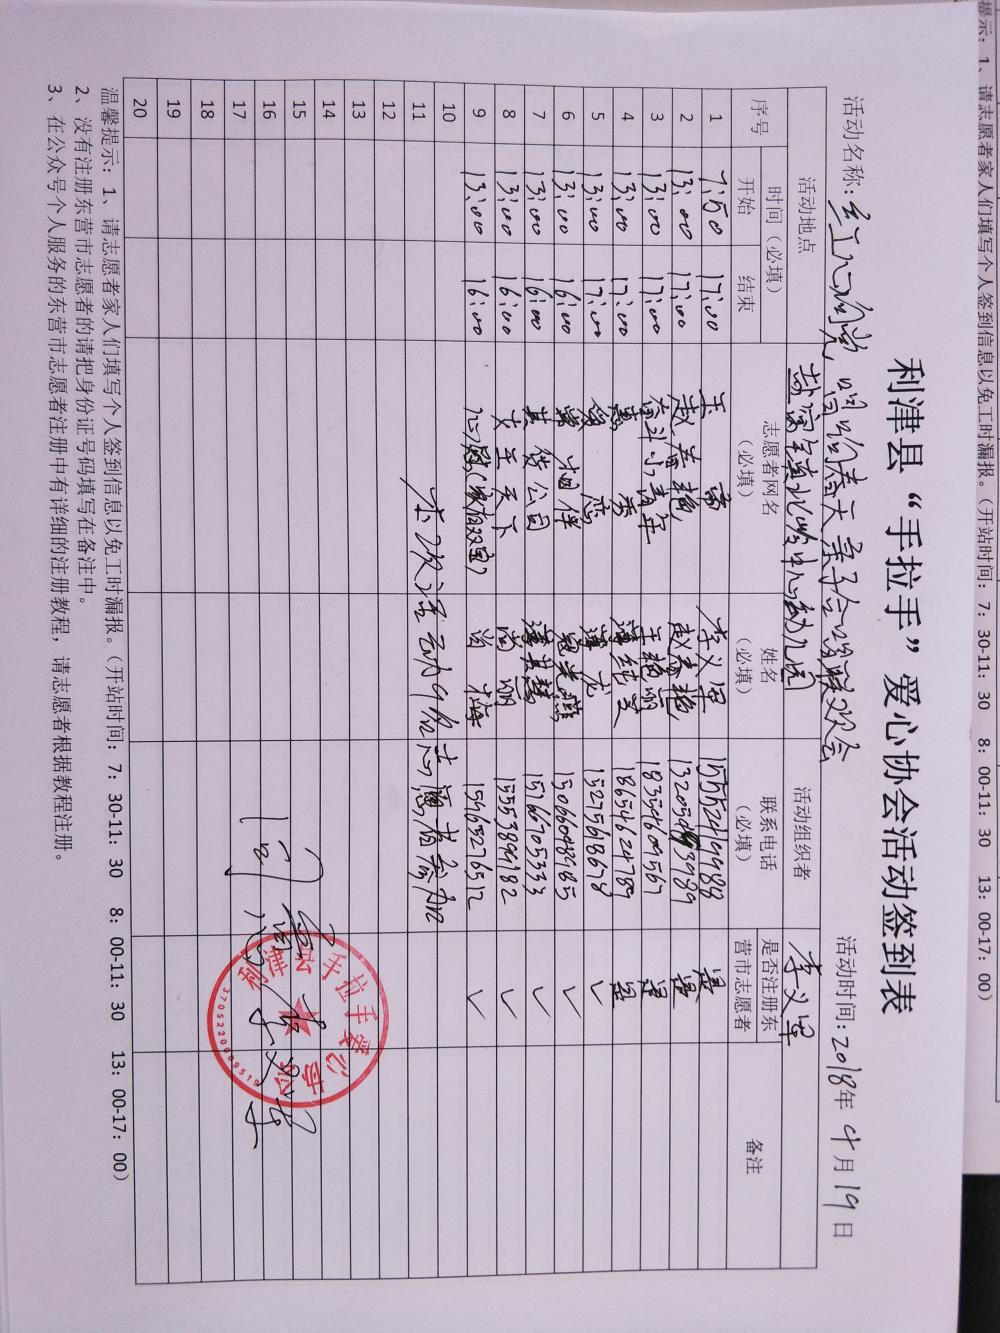 利津县“手拉手”爱心协会活动签到表
活动名称：红心向党 唱响春天亲子合唱联欢会 活动时间：2018年4月19日
活动地点 盐窝镇北岭中心幼儿园 活动组织者 李义军
序号 时间（必填） 志愿者网名（必填） 姓名（必填） 联系电话（必填） 是否注册东营市志愿者 备注
开始 结束
1 7:50 17:00 李义军 是
2 13:00 17:00 赵春艳 赵春艳 是
3 13:00 17:00 奋斗小青年 王艳丽 18354609567 是
4 13:00 17:00 18654624789 是
5 13:00 17:00 15275618678 ✓
6 13:00 16:00 ✓
7 13:00 16:00 15766705333 ✓
8 13:00 16:00 尚丽 15553899182 ✓
9 13:00 16:00 尚梅 15963276512 ✓
10
11
12
13
14
15
16
17
18
19
20
本次活动9名志愿者参加
利津县手拉手爱心协会
3705220009519
温馨提示：1、请志愿者家人们填写个人签到信息以免工时漏报。（开站时间：7：30-11：30 8：00-11：30 13：00-17：00）
2、没有注册东营市志愿者的请把身份证号码填写在备注中。
3、在公众号个人服务的东营市志愿者注册中有详细的注册教程，请志愿者根据教程注册。
提示：1、请志愿者家人们填写个人签到信息以免工时漏报。（开站时间：7：30-11：30 8：00-11：30 13：00-17：00）